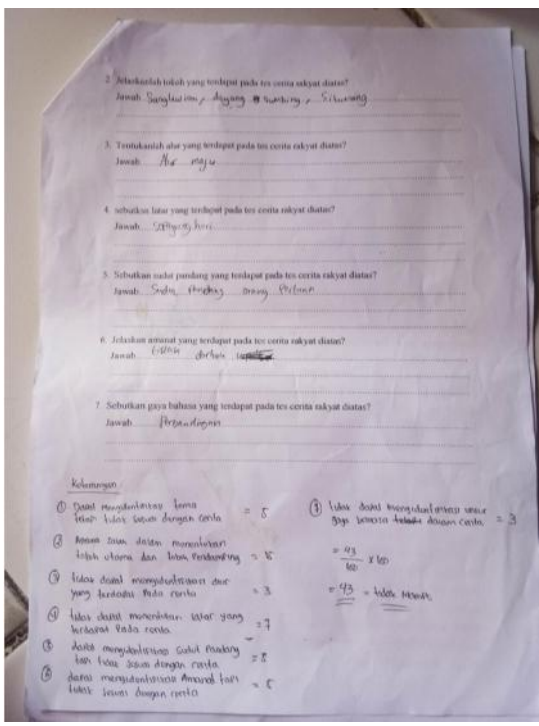 2. Jelaskanlah tokoh yang terdapat pada tes cerita rakyat diatas?
Jawab Sangkuriang, dayang sumbing, Situmang
3. Tentukanlah alur yang terdapat pada tes cerita rakyat diatas?
Jawab Alur maju
4. sebutkan latar yang terdapat pada tes cerita rakyat diatas?
Jawab hari
5. Sebutkan sudut pandang yang terdapat pada tes cerita rakyat diatas?
Jawab Sudut Pandang orang Pertama
6. Jelaskan amanat yang terdapat pada tes cerita rakyat diatas?
Jawab durhaka
7. Sebutkan gaya bahasa yang terdapat pada tes cerita rakyat diatas?
Jawab Perbandingan
Keterangan
① Dapat mengidentifikasi tema
tetapi tidak sesuai dengan cerita = 5
② dalam menentukan
tokoh utama dan tokoh Pendamping
③ tidak dapat mengidentifikasi alur
yang terdapat Pada cerita = 3
④ tidak dapat menentukan latar yang
terdapat Pada cerita = 7
⑤ dapat mengidentifikasi Sudut Pandang
tapi tidak sesuai dengan cerita
⑥ dapat mengidentifikasi Amanat tapi
tidak sesuai dengan cerita
tidak dapat mengidentifikasi unsur
gaya bahasa dalam cerita = 3
= 43
x 100
= 43 = tidak